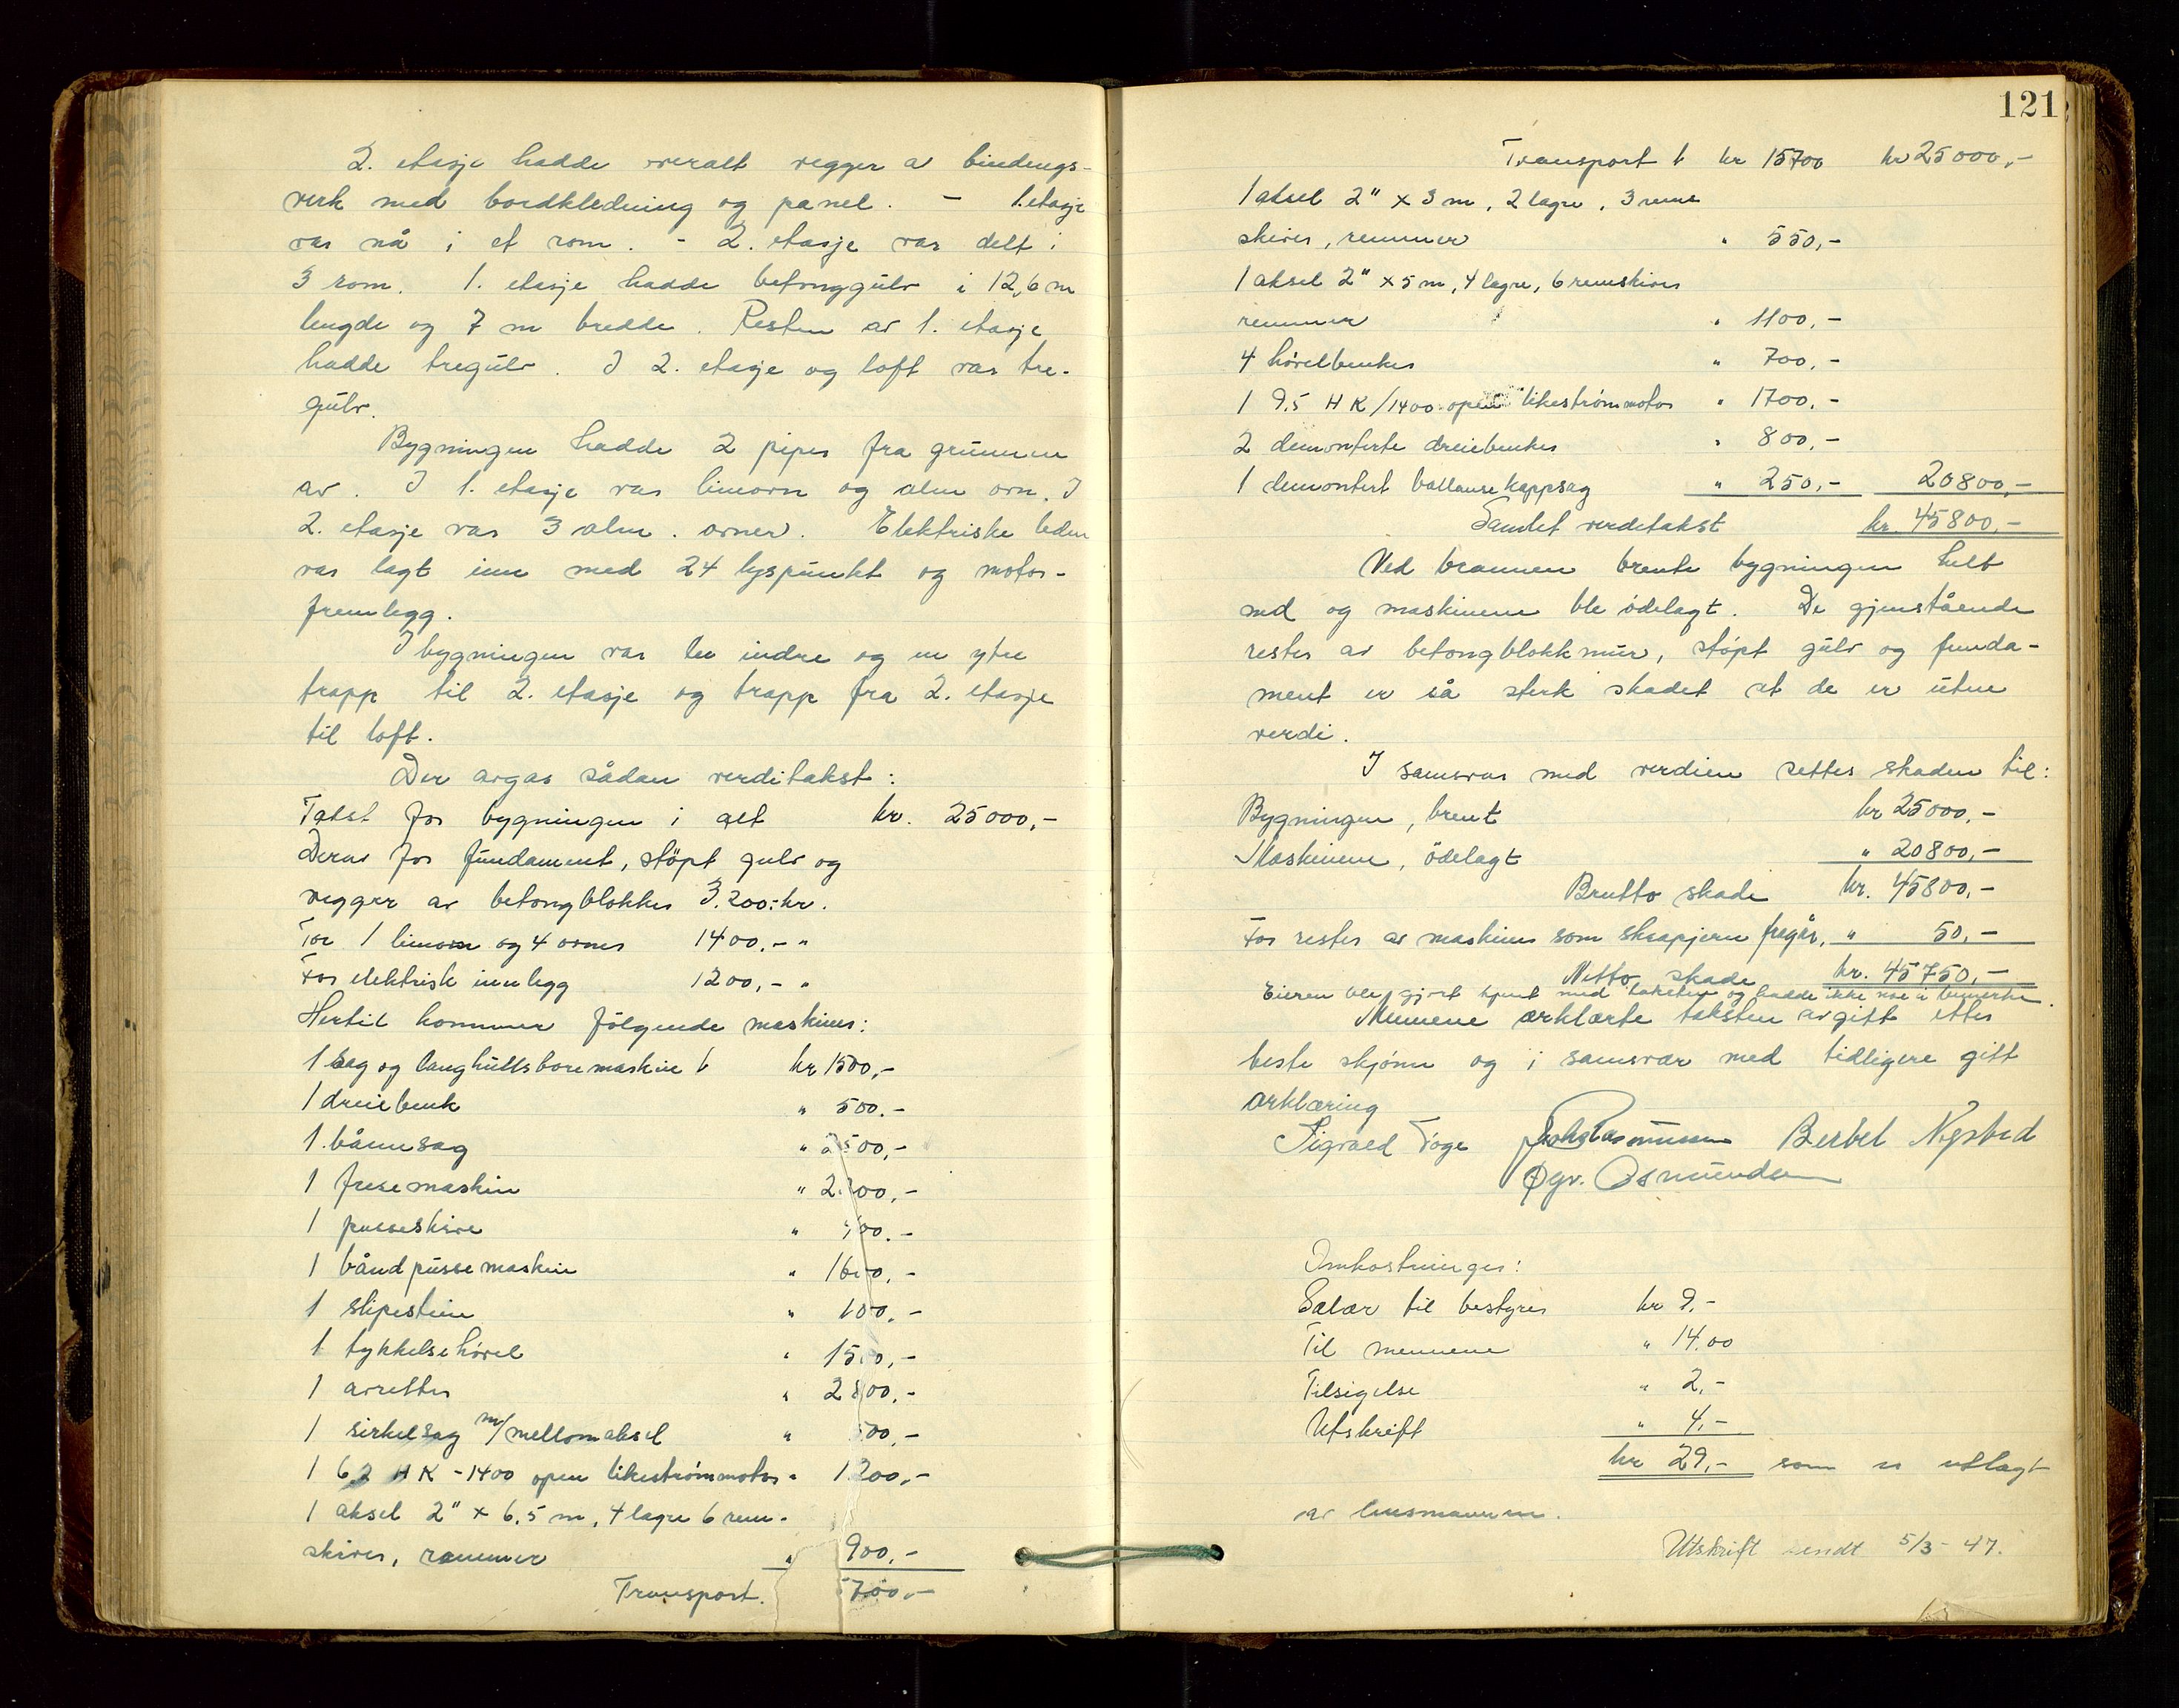 2. etasje hadde overalt vegger av bindings-
verk med bordkledning og panel. - 1. etasje
var nå i et rom. - 2. etasje var delt i
3 rom. 1. etasje hadde betonggulv i 12,6 m
lengde og 7 m bredde. Resten av 1. etasje
hadde tregulv. I 2. etasje og loft var tre-
gulv.
Bygningen hadde 2 piper fra grunnen
av. I 1. etasje var limovn og alm ovn. I
2. etasje var 3 alm. ovner. Elektriske ledn
var lagt inn med 24 lyspunkt og motor-
fremlegg.
I bygningen var en indre og en ytre
trapp til 2. etasje og trapp fra 2. etasje
til loft.
Der avgas sådan verditakst:
Takst for bygningen i alt kr. 25000,-
Derav for fundament, støpt gulv og
vegger av betongblokker 3.200:kr.
For 1 limovn og 4 ovner 1400.- "
For elektrisk innlegg 1200,- "
Hertil kommer følgende maskiner:
1 sag og langhullsboremaskin t kr 1500,-
1 dreiebenk " 500.-
1 båndsag " 2500,-
1 fresemaskin " 2.00,-
1 pusseskive " 00.-
1 båndpussemaskin " 1600,-
1 slipestein " 100,-
1 tykkelsehøvel " 1500,-
1 avretter " 2800,-
1 sirkelsag m/mellomaksel " 500,-
1 6,2 HK - 1400 open likestrømmotor " 1200,-
1 aksel 2" x 6,5 m, 4 lagre 6 rem-
skiver, remmer " 900,-
Transport. 5700,-
121
Transport t kr 15700 kr 25000,-
1 aksel 2" x 3 m, 2 lagre, 3 rems
skiver, remmer " 550,-
1 aksel 2" x 5 m, 4 lagre, 6 remskiver
remmer " 1100,-
4 høvelbenker " 700,-
1 9,5 HK/1400 open likestrømmotor " 1700,-
2 demonterte dreiebenker " 800,-
1 demontert ballanse kappsag " 250,- 20800,-
Samlet verditakst kr. 45800,-
Ved brannen brente bygningen helt
ned og maskinene ble ødelagt. De gjenstående
rester av betongblokkmur, støpt gulv og funda-
ment er så sterk skadet at de er uten
verdi.
I samsvar med verdien settes skaden til:
Bygningen, brent kr 25000,-
Maskinene, ødelagt " 20800,-
Brutto skade kr. 45800,-
For rester av maskiner som skrapjern fragår, " 50,-
Netto skade kr. 45750,-
Eieren ble gjort kjent med taksten og hadde ikke noe å bemerke.
Mennene erklærte taksten avgitt etter
beste skjønn og i samsvar med tidligere gitt
erklæring
Sigvald Toge Rasmussen Berbel Nystad
Øyv. Osmundsen
Omkostninger:
Salær til bestyrer kr 9.-
Til mennene " 14.00
Tilsigelse " 2,-
Utskrift " 4,-
kr 29,- som er utlagt
av lensmannen.
Utskrift sendt 5/3 - 47.